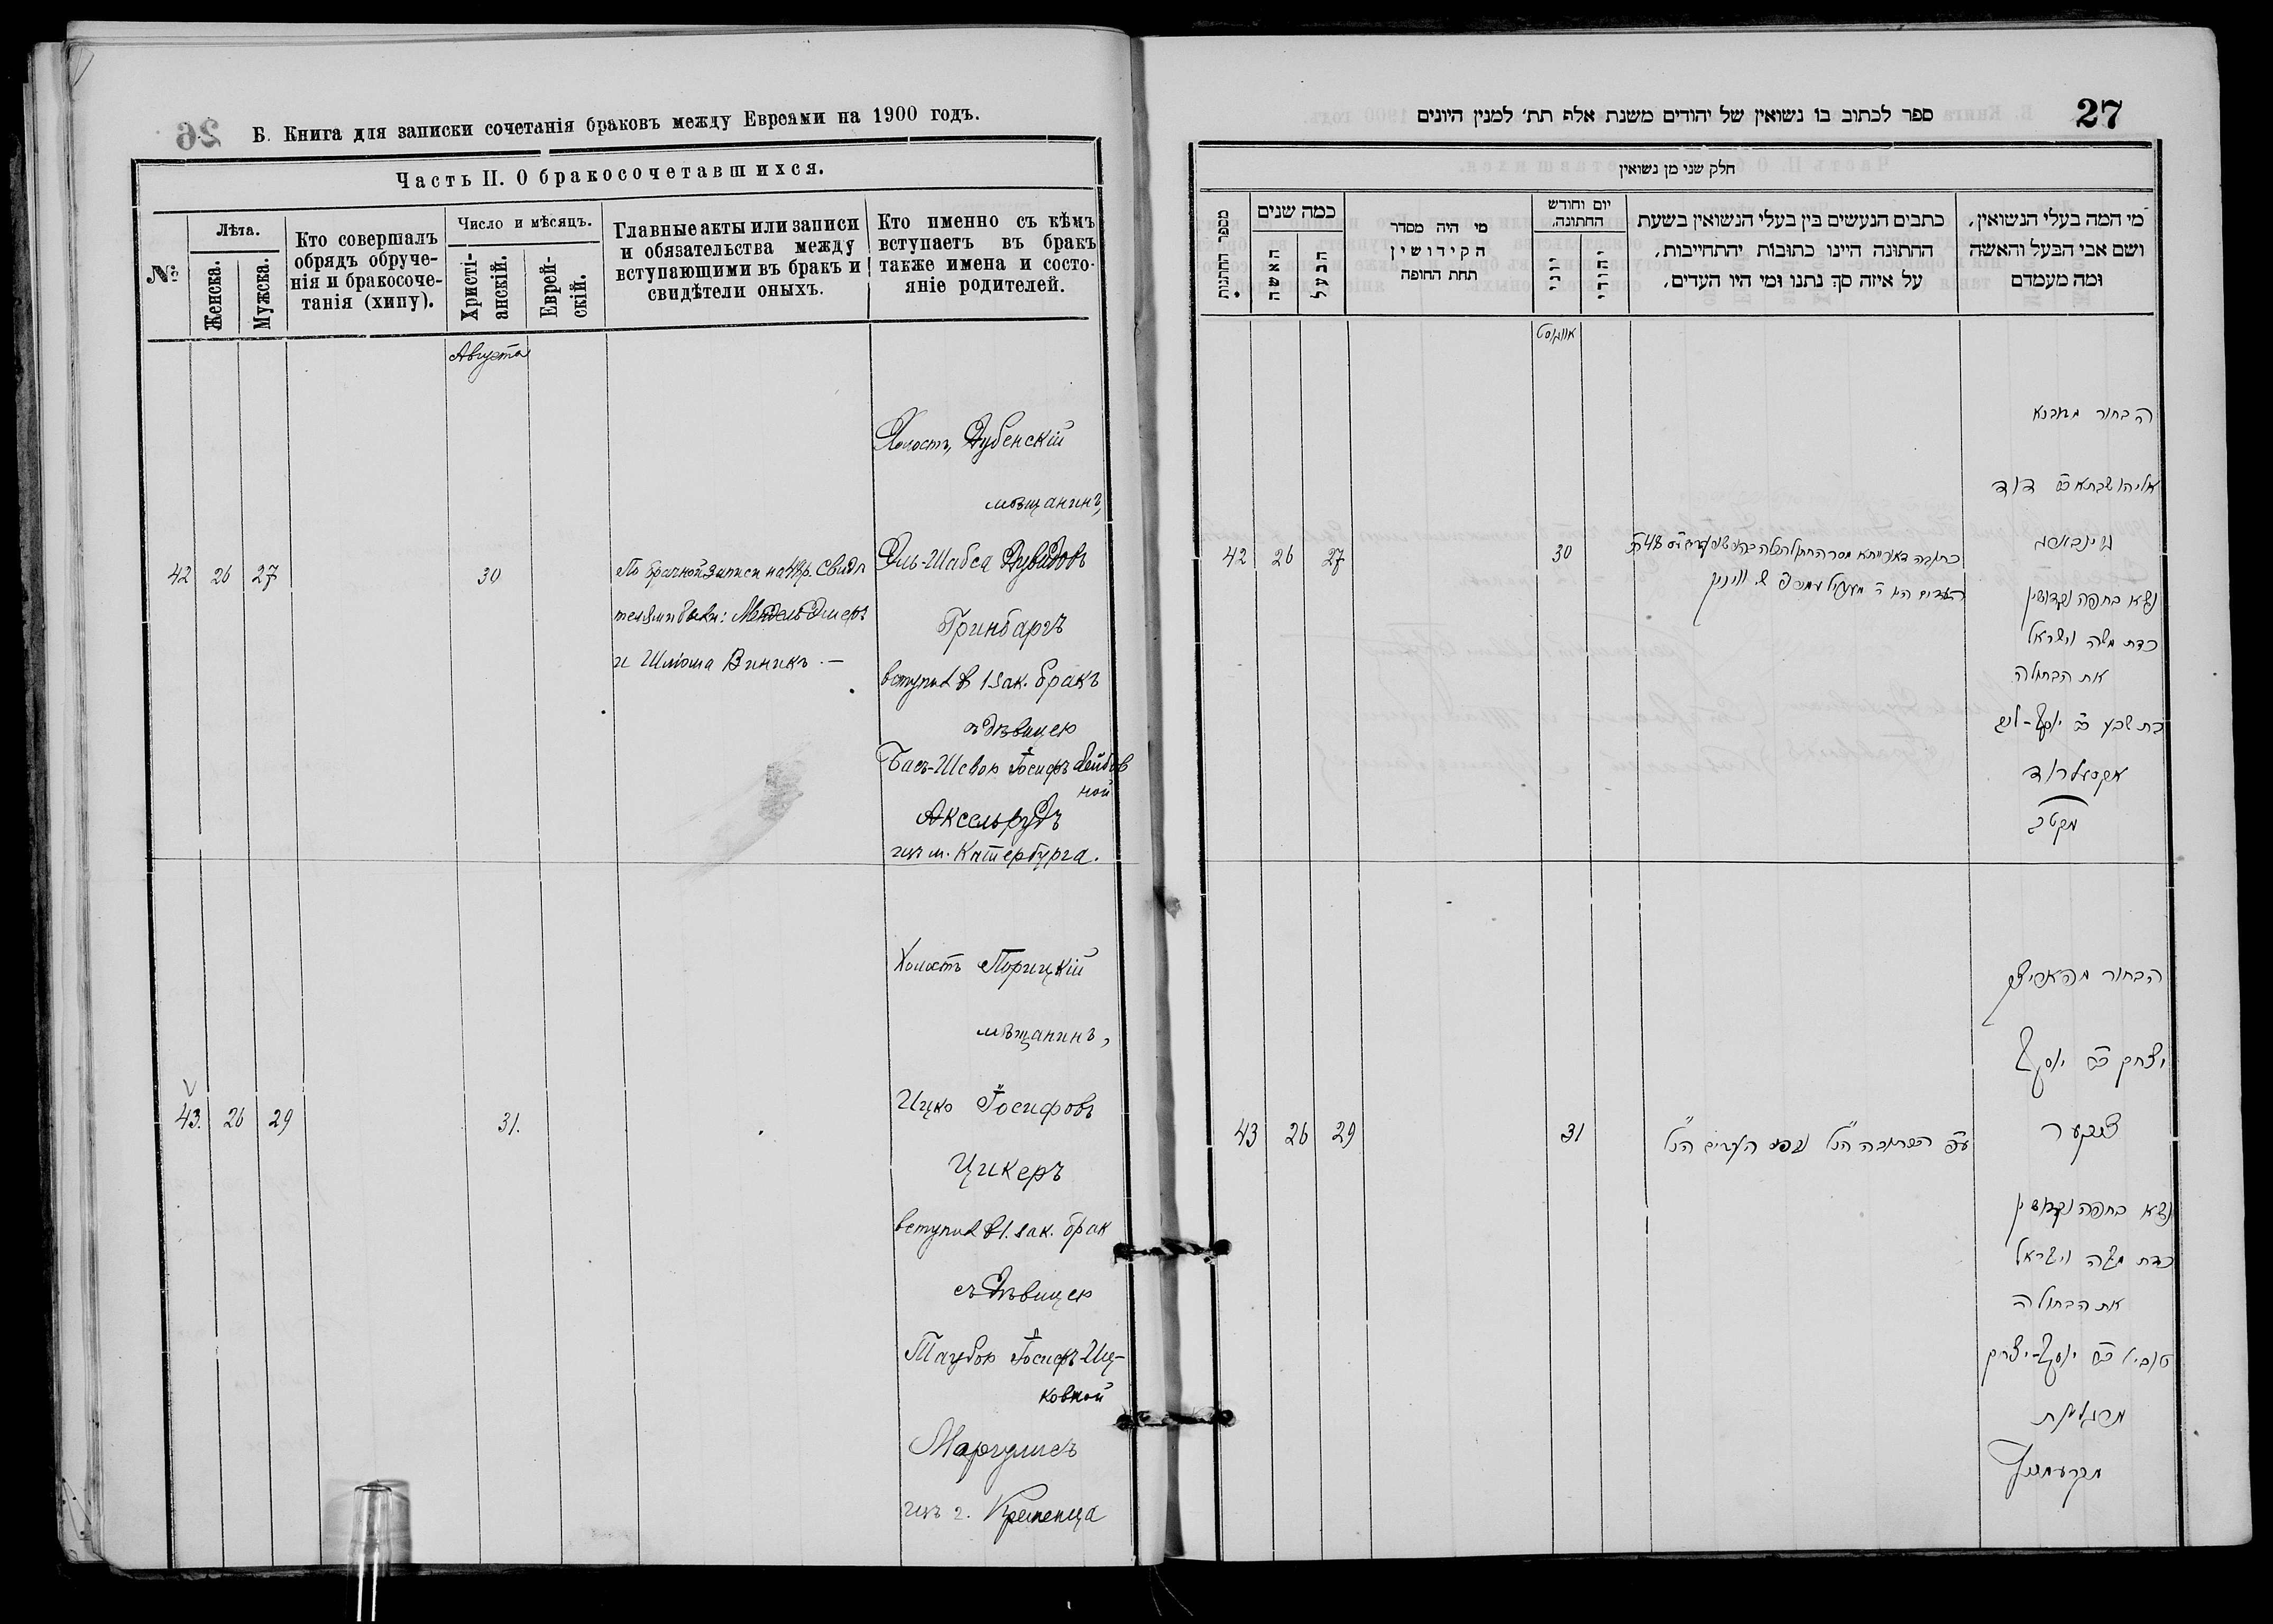 26
Б. Книга для записки сочетанія браковъ между Евреами на 1900 годъ.
Часть II. О бракосочетавшихся.
№
Лѣта.
Женска.
Мужска.
Кто совершалъ
обрядъ обруче-
нія и бракосоче-
танія (хипу).
Число и мѣсяцъ.
Христі-
анскій.
Еврей-
скій.
Главные акты или записи
и обязательства между
вступающими въ бракъ и
свидѣтели оныхъ.
Кто именно съ кѣмъ
вступаетъ въ бракъ
также имена и состо-
яніе родителей.
Августа
42 26 27 30
По брачной записи на 48 р. Свидѣ
телями были: Мендель Элмеръ
и Шліома Виникъ. —
Холостъ, Дубенскій
мѣщанинъ,
Эль-Шабса Дувидовъ
Гринбаргъ
вступил в 1 зак. бракъ
съ дѣвицею
Басъ-Шевою Іосифъ Лейбов
ной
Аксельрудъ
изъ м. Катербурга.
43. 26 29 31.
Холостъ Порицкій
мѣщанинъ,
Ицко Іосифовъ
Цикеръ
вступил в 1. зак. брак
съ Дѣвицею
Таубою Іосифъ-Иц-
ковной
Маргулисъ
изъ г. Кременца
27
ספר לכתוב בו נשואין של יהודים משנת אלף תת׳ למנין היונים
חלק שני מן נשואין
מספר החתונות
כמה שנים
האשה
הבעל
מי היה מסדר
הקידושין
תחת החופה
יום וחודש
החתונה.
יוני
יהודי
כתבים הנעשים בין בעלי הנשואין בשעת
החתונה היינו כתובות יהתחייבות,
על איזה סך נתנו ומי היו העדים,
מי המה בעלי הנשואין,
ושם אבי הבעל והאשה
ומה מעמדם
אווגוסט
42 26 27 30
הבחור מדובנא
אליהו שבתא ב״ם דוד
גרינבארג
נשא בחופה וקדושין
כדת משה וישראל
את הבתולה
בת שבע ב״ם יוסף-ליב
אקסעלרוד
43 26 29 31
ע״פ הכתובה הנ״ל ובפני העדים הנ״ל
הבחור מפאריצק
יצחק ב״ם יוסף
ציקער
נשא בחופה וקדושין
כדת משה וישראל
את הבתולה
טובא ב״ם יוסף-יצחק
מרגליות
מקרעמניץ